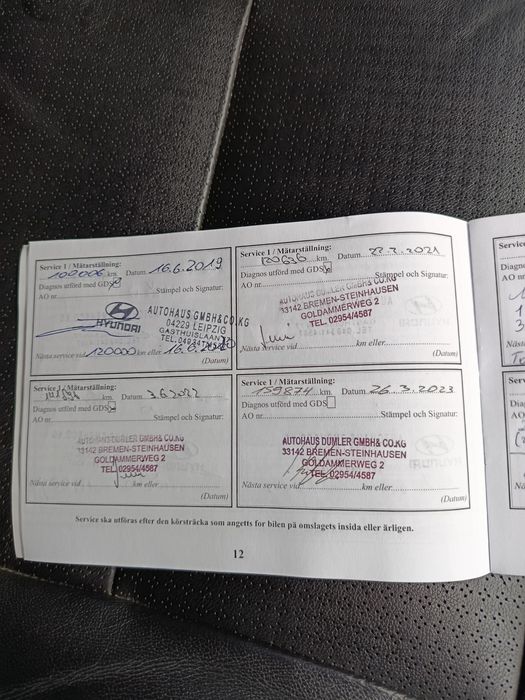 Service 1 / Mätarställning:
100006 km. Datum 16.6.2019
Diagnos utförd med GDS
AO nr. Stämpel och Signatur:
HYUNDAI
AUTOHAUS GMBH&CO.KG
04229 LEIPZIG
Nästa service vid 120000 km eller 16.6.2020
(Datum)
Service 1 / Mätarställning:
km. Datum 23.3.2021
Diagnos utförd med GDS
AO nr. Stämpel och Signatur:
AUTOHAUS DUMLER GMBH& CO.KG
33142 BREMEN-STEINHAUSEN
GOLDAMMERWEG 2
TEL. 02954/4587
Nästa service vid km eller
(Datum)
Service 1 / Mätarställning:
km. Datum 3.6.2022
Diagnos utförd med GDS
AO nr. Stämpel och Signatur:
AUTOHAUS DUMLER GMBH& CO.KG
33142 BREMEN-STEINHAUSEN
GOLDAMMERWEG 2
TEL. 02954/4587
Nästa service vid km eller
(Datum)
Service 1 / Mätarställning:
159874 km. Datum 26.3.2023
Diagnos utförd med GDS
AO nr. Stämpel och Signatur:
AUTOHAUS DUMLER GMBH& CO.KG
33142 BREMEN-STEINHAUSEN
GOLDAMMERWEG 2
TEL. 02954/4587
Nästa service vid km eller
(Datum)
Service ska utföras efter den körsträcka som angetts för bilen på omslagets insida eller årligen.
12